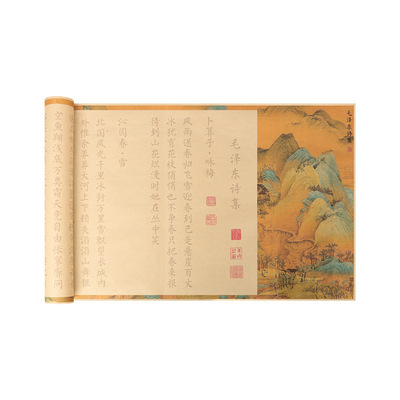 毛泽东诗
毛泽东诗集
卜算子·咏梅
风雨送春归飞雪迎春到已是悬崖百丈
冰犹有花枝俏俏也不争春只把春来报
待到山花烂漫时她在丛中笑
沁园春·雪
北国风光千里冰封万里雪飘望长城内
外惟余莽莽大河上下顿失滔滔山舞银
空鱼翔浅底万类霜天竞自由怅寥廓问